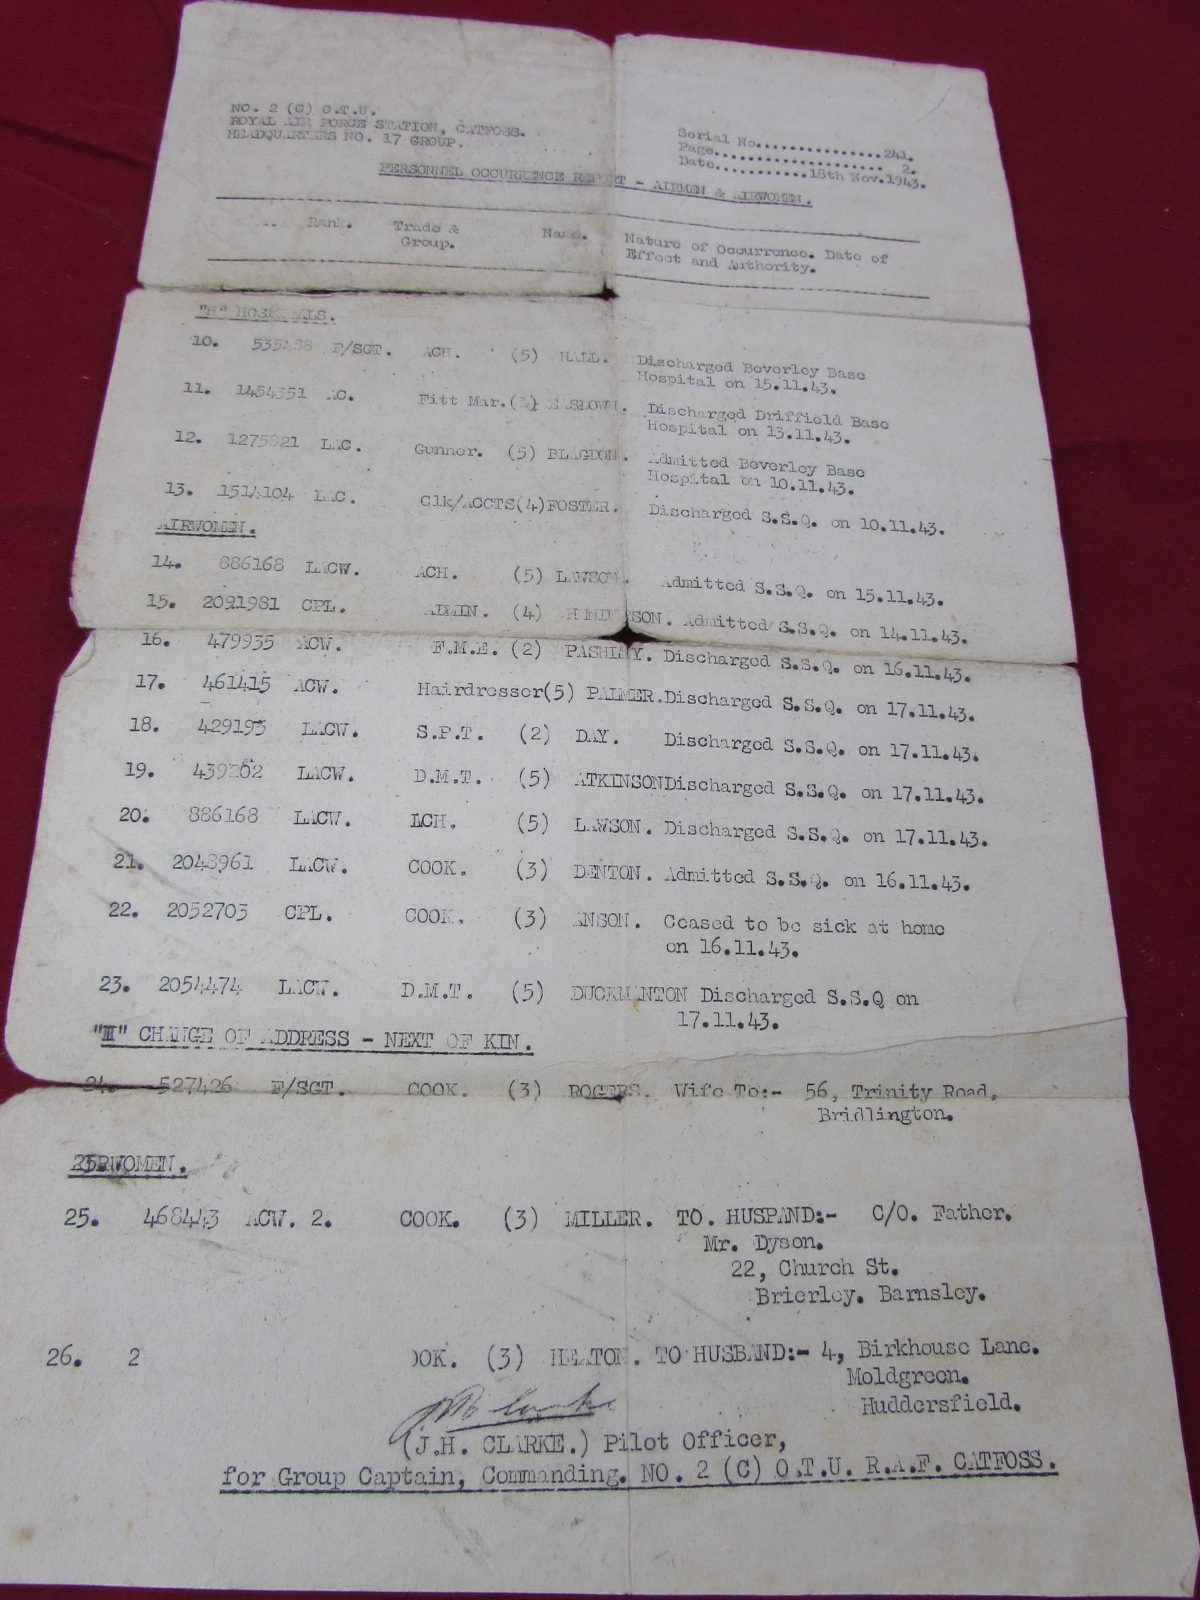 NO. 2 (C) O.T.U.
ROYAL AIR FORCE STATION, CATFOSS.
HEADQUARTERS NO. 17 GROUP.
Serial No...............241.
Page.................... 2.
Date...........18th Nov.1943.
PERSONNEL OCCURRENCE REPORT - AIRMEN & AIRWOMEN.
Rank. Trade & Name. Nature of Occurrence. Date of
Group. Effect and Authority.
"H"
10. F/SGT. ACH. (5) HALL. Discharged Beverley Base
Hospital on 15.11.43.
11. 1454351 Fitt Mar. Discharged Driffield Base
Hospital on 13.11.43.
12. 1275821 LAC. Gunner. (5) BLAGDON. Admitted Beverley Base
Hospital on 10.11.43.
13. 1514104 LAC. Clk/ACCTS(4)FOSTER. Discharged S.S.Q. on 10.11.43.
AIRWOMEN.
14. 886168 LACW. ACH. (5) LAWSON. Admitted S.S.Q. on 15.11.43.
15. 2091981 CPL. ADMIN. (4) Admitted S.S.Q. on 14.11.43.
16. 479935 ACW. F.M.E. (2) PASHLEY. Discharged S.S.Q. on 16.11.43.
17. 461415 ACW. Hairdresser(5) PALMER.Discharged S.S.Q. on 17.11.43.
18. 429193 LACW. S.P.T. (2) DAY. Discharged S.S.Q. on 17.11.43.
19. LACW. D.M.T. (5) ATKINSONDischarged S.S.Q. on 17.11.43.
20. 886168 LACW. ACH. (5) LAWSON. Discharged S.S.Q. on 17.11.43.
21. 2048961 LACW. COOK. (3) DENTON. Admitted S.S.Q. on 16.11.43.
22. 2052703 CPL. COOK. (3) ANSON. Ceased to be sick at home
on 16.11.43.
23. 2054474 LACW. D.M.T. (5) DUCKMANTON Discharged S.S.Q on
17.11.43.
CHANGE OF ADDRESS - NEXT OF KIN.
24. 527426 F/SGT. COOK. (3) ROGERS. Wife To:- 56, Trinity Road,
Bridlington.
AIRWOMEN.
25. 468443 ACW. 2. COOK. (3) MILLER. TO. HUSPAND:- C/O. Father.
Mr. Dyson.
22, Church St.
Brierley. Barnsley.
26. 2 OOK. (3) HEATON. TO HUSBAND:- 4, Birkhouse Lane.
Moldgreen.
Huddersfield.
(J.H. CLARKE.) Pilot Officer,
for Group Captain, Commanding. NO. 2 (C) O.T.U. R.A.F. CATFOSS.